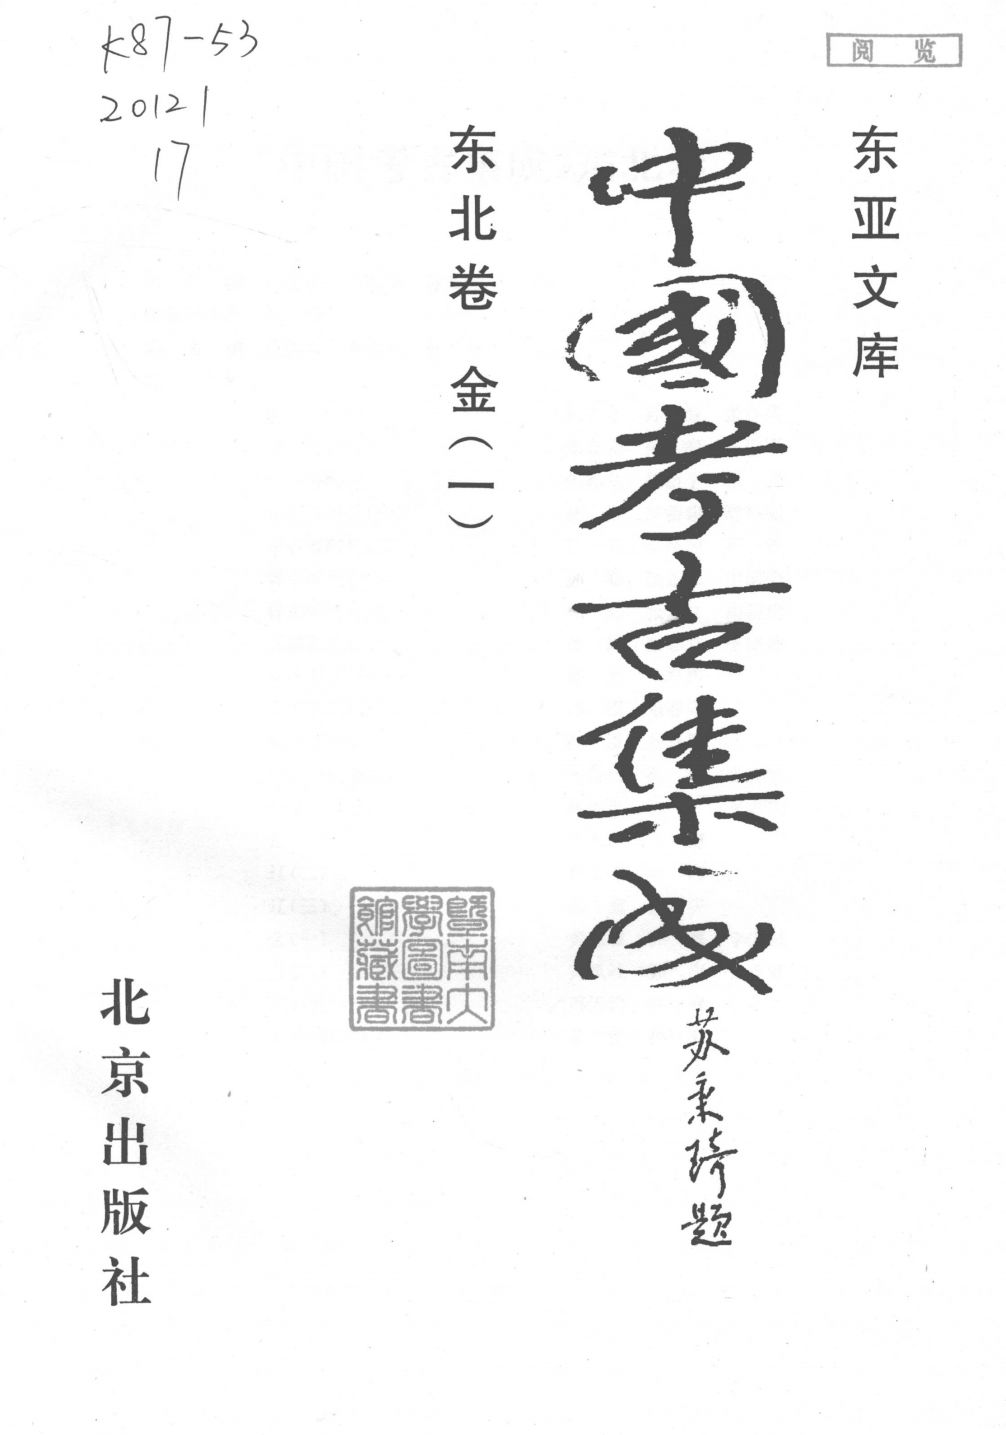 K87-53
20121
17
阅 览
东亚文库
中國考古集成
苏秉琦题
东北卷 金(一)
暨南大
學圖書
館藏書
北京出版社